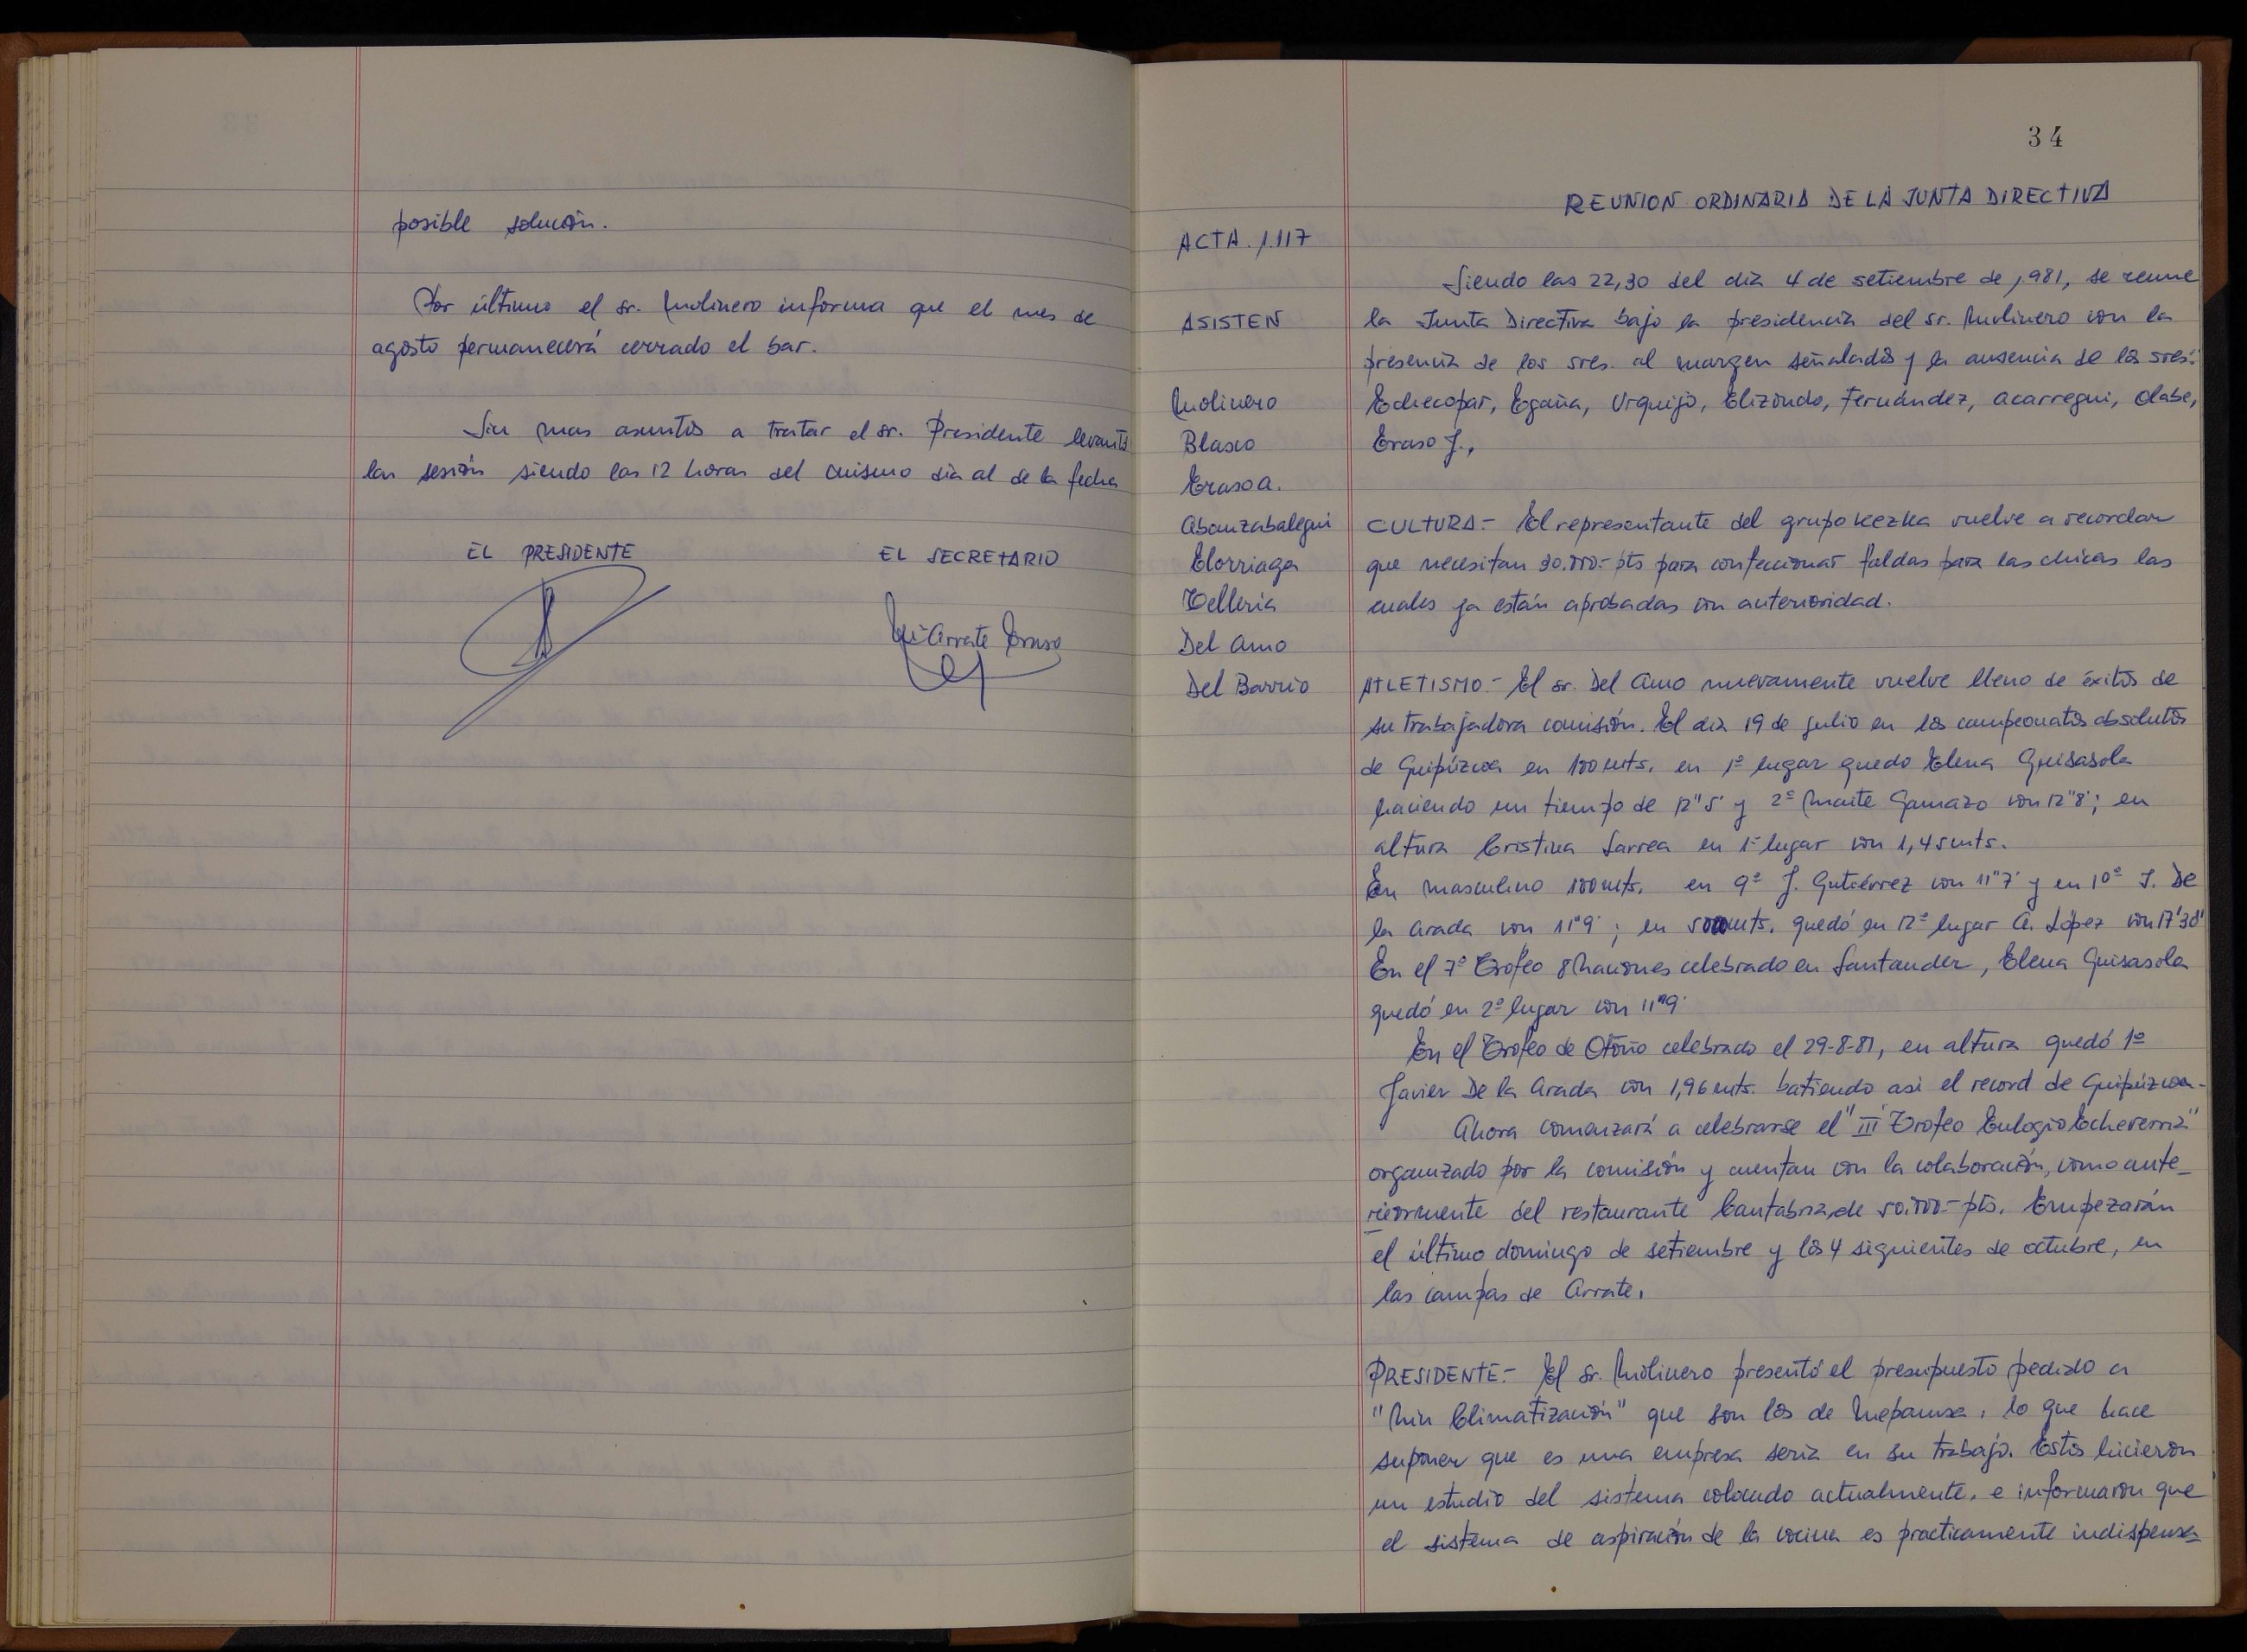 posible solución.
Por último el sr. Molinero informa que el mes de
agosto permanecerá cerrado el bar.
Sin mas asuntos a tratar el sr. Presidente levanta
la sesión siendo las 12 horas del mismo dia al de la fecha
EL PRESIDENTE EL SECRETARIO
Arrate Eraso
34
REUNION ORDINARIA DE LA JUNTA DIRECTIVA
ACTA. 1.117
ASISTEN
Molinero
Blasco
Eraso A.
Abanzabalegui
Elorriaga
Telleria
Del Amo
Del Barrio
Siendo las 22,30 del dia 4 de setiembre de 1.981, se reune
la Junta Directiva bajo la presidencia del sr. Molinero con la
presencia de los sres. al margen señalados y la ausencia de los sres:
Echecopar, Egaña, Urquijo, Elizondo, Fernández, Acarregui, Olabe,
Eraso J.,
CULTURA.- El representante del grupo Kezka vuelve a recordar
que necesitan 30.000.- pts para confeccionar faldas para las chicas las
cuales ya están aprobadas con anterioridad.
ATLETISMO.- El sr. Del Amo nuevamente vuelve lleno de éxitos de
su trabajadora comisión. El dia 19 de julio en los campeonatos absolutos
de Guipúzcoa en 100 mts. en 1º lugar quedo Elena Guisasola
haciendo un tiempo de 12"5' y 2º Maite Gamazo con 12"8'; en
altura Cristina Larrea en 1º lugar con 1,45 mts.
En masculino 100 mts. en 9º J. Gutiérrez con 11"7' y en 10º J. De
la Arada con 11"9'; en 5000 mts. quedó en 12º lugar A. López con 17'38'
En el 7º Trofeo 8 Naciones celebrado en Santander, Elena Guisasola
quedó en 2º lugar con 11"9'
En el Trofeo de Otoño celebrado el 29-8-81, en altura quedó 1º
Javier De la Arada con 1,96 mts. batiendo asi el record de Guipúzcoa.-
Ahora comenzará a celebrarse el "III Trofeo Eulogio Echeverria"
organizado por la comisión y cuentan con la colaboración, como ante-
riormente del restaurante Cantabria, de 50.000.- pts. Empezarán
el último domingo de setiembre y los 4 siguientes de octubre, en
las campas de Arrate.
PRESIDENTE.- El Sr. Molinero presentó el presupuesto pedido a
" Climatización" que son los de Mepamsa, lo que hace
suponer que es una empresa seria en su trabajo. Estos hicieron
un estudio del sistema colocado actualmente, e informaron que
el sistema de aspiración de la cocina es practicamente indispensa-